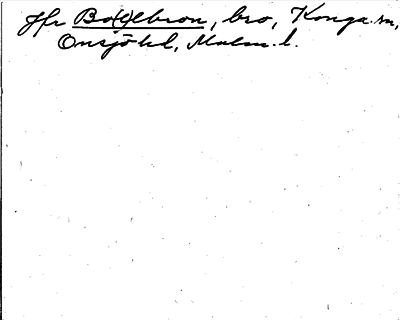 Jfr Bo(e)lbron, bro, Konga sn,
Onsjö hd, Malm. l.